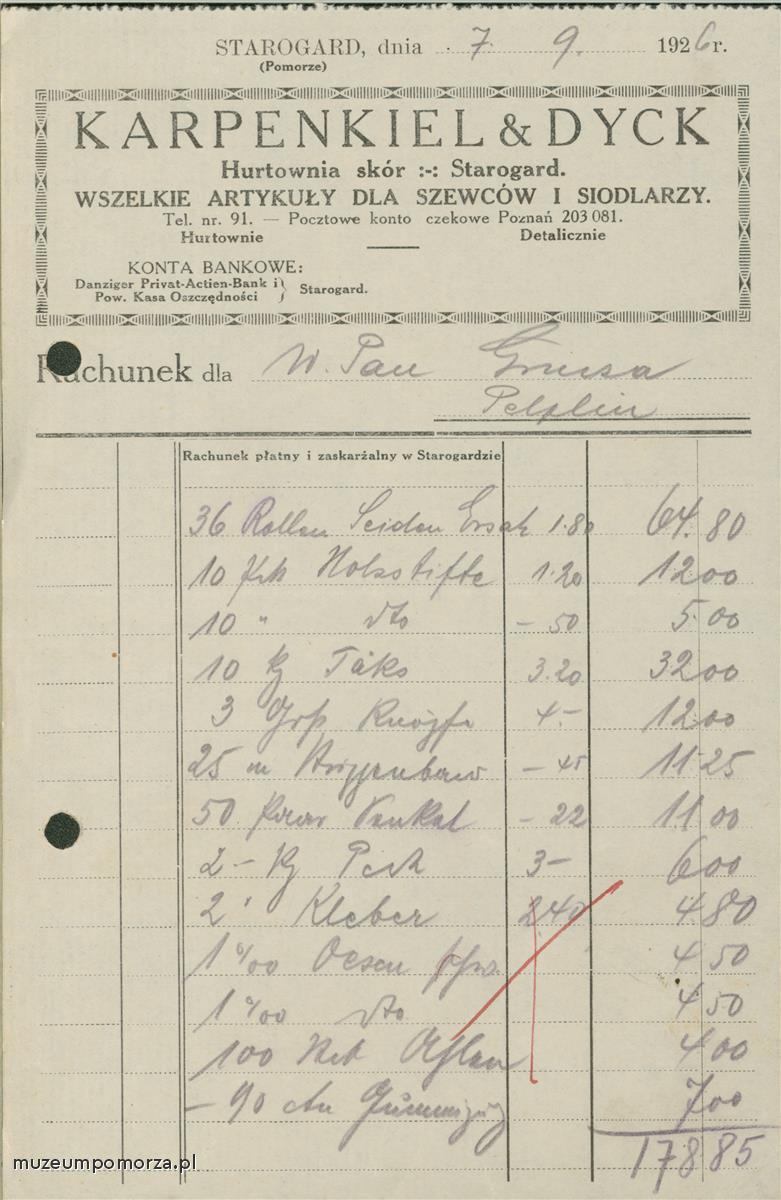 STAROGARD, dnia 7. 9. 1926 r.
(Pomorze)
KARPENKIEL & DYCK
Hurtownia skór :-: Starogard.
WSZELKIE ARTYKUŁY DLA SZEWCÓW I SIODLARZY.
Tel. nr. 91. — Pocztowe konto czekowe Poznań 203 081.
Hurtownie Detalicznie
KONTA BANKOWE:
Danziger Privat-Actien-Bank i
Pow. Kasa Oszczędności } Starogard.
Rachunek dla W. Pan
Pelplin
Rachunek płatny i zaskarżalny w Starogardzie
36 Rollen Seiden Ersatz 1.80 64.80
10 Holzstifte 1.20 12 00
10 " dto - 50 5 00
10 Kg Täks 3.20 32 00
3 Knöpfe 4.- 12 00
25 m - 45 11 25
50 - 22 11 00
2 - Kg Pech 3- 6 00
2 " Kleber 2 40 4 80
1 %00 Oesen 4 50
1 %00 dto 4 50
100 4 00
- 90 ctm 7 00
178 85
muzeumpomorza.pl